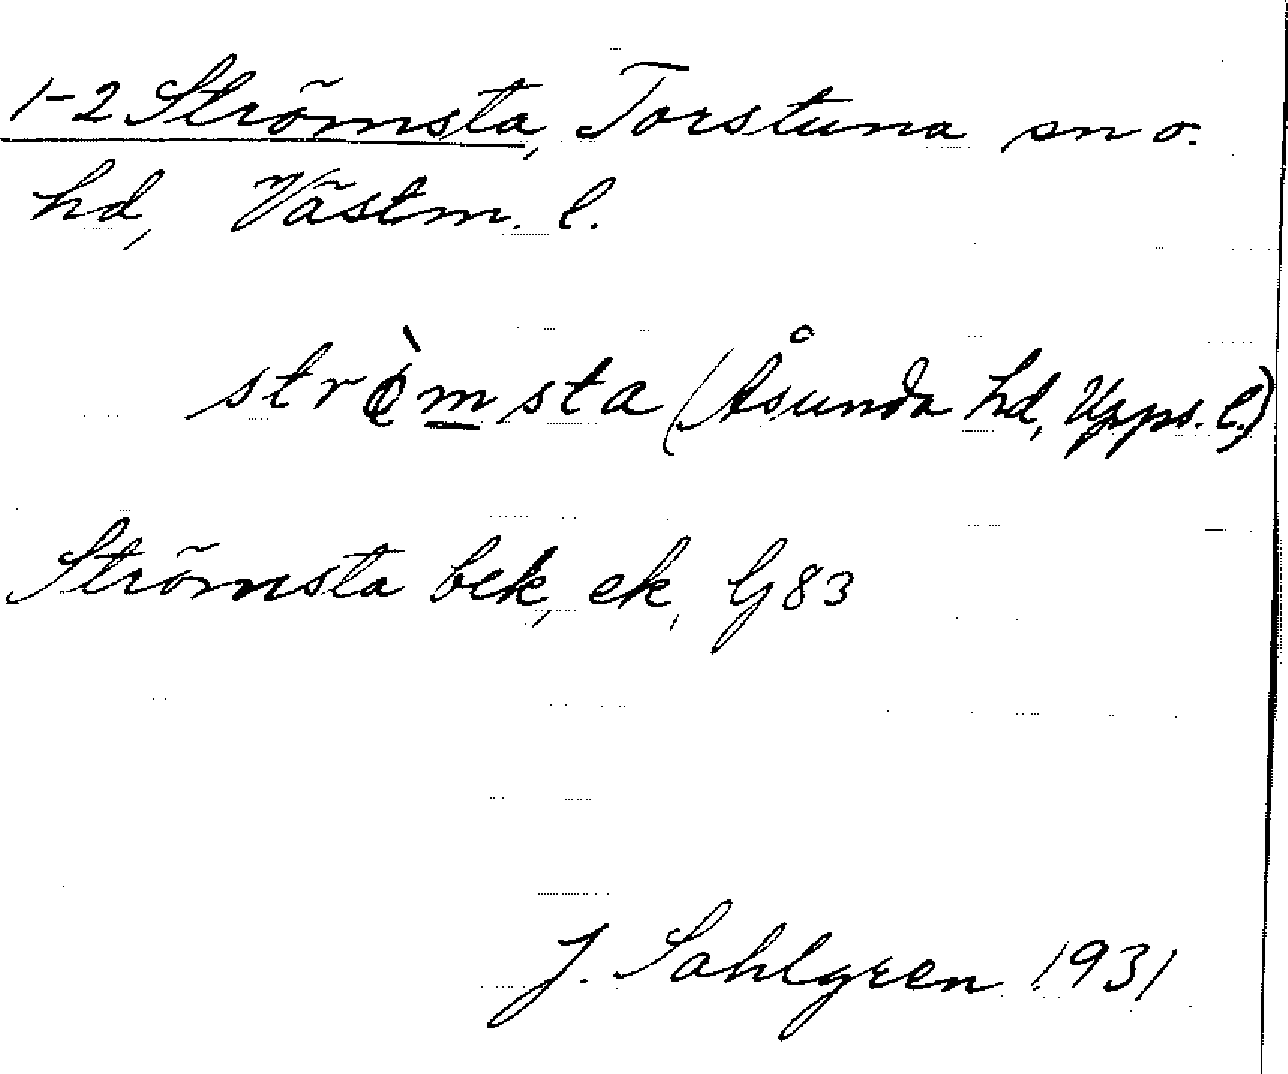 1-2 Strömsta, Torstuna sn o.
hd, Västm. l.
strø̀msta (Åsunda hd, Upps. l.)
Strömsta bek, ek, G 83
J. Sahlgren 1931